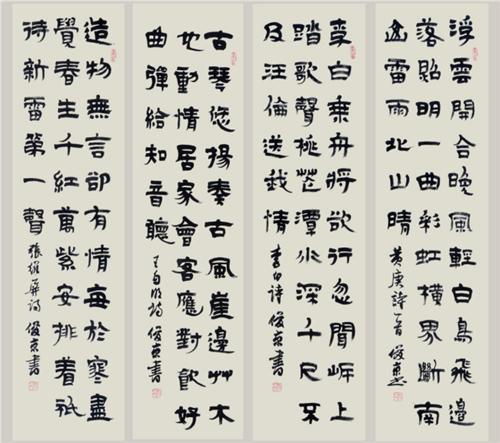 浮雲開合晚風輕白鳥飛邊
落照明一曲彩虹橫界斷南
山雷雨北山晴 黃庚詩一首 俊京書
李白乘舟將欲行忽聞岸上
踏歌聲桃花潭水深千尺不
及汪倫送我情 李白詩 俊京書
古琴悠揚奏古風崖邊艸木
也動情居家會客應對飲好
曲彈給知音聽 詩 俊京書
造物無言卻有情每於寒盡
覺春生千紅萬紫安排着祇
待新雷第一聲 張維屏詩 俊京書